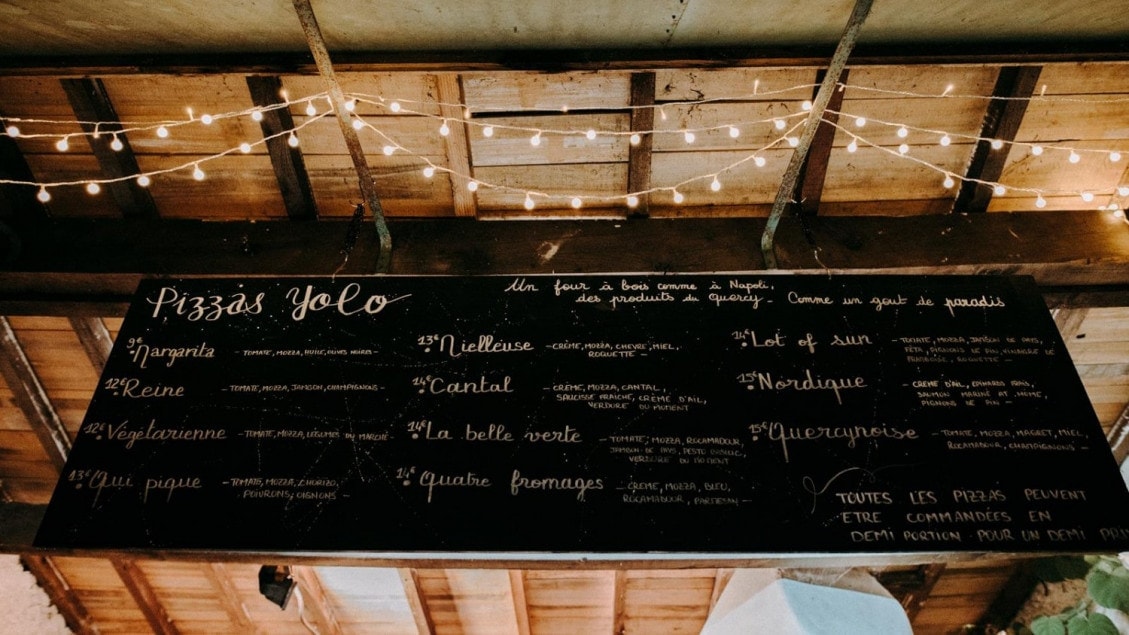 Pizzas Yolo
Un four à bois comme à Napoli,
des produits du Quercy - Comme un gout de paradis
9€ Margarita - TOMATE, MOZZA, HUILE, OLIVES NOIRES -
12€ Reine - TOMATE, MOZZA, JAMBON, CHAMPIGNONS -
12€ Végétarienne - TOMATE, MOZZA, LÉGUMES DU MARCHÉ
13€ Qui pique - TOMATE, MOZZA, CHORIZO,
POIVRONS, OIGNONS -
13€ Nielleuse - CRÈME, MOZZA, CHEVRE, MIEL,
ROQUETTE -
14€ Cantal - CRÈME, MOZZA, CANTAL,
SAUCISSE FRAICHE, CRÈME D'AIL,
VERDURE DU MOMENT
14€ La belle verte - TOMATE, MOZZA, ROCAMADOUR,
JAMBON DE PAYS, PESTO
VERDURE DU MOMENT
14€ Quatre fromages - CRÈME, MOZZA, BLEU,
ROCAMADOUR, PARMESAN -
14€ Lot of sun - TOMATE, MOZZA, JAMBON DE PAYS,
FÊTA, PIGNONS DE PIN, VINAIGRE DE
FRAMBOISE, ROQUETTE -
15€ Nordique - CRÈME D'AIL, FRAIS,
SAUMON MARINÉ ET FUMÉ,
PIGNONS DE PIN -
15€ Quercynoise - TOMATE, MOZZA, MAGRET, MIEL,
ROCAMADOUR, CHAMPIGNONS -
TOUTES LES PIZZAS PEUVENT
ETRE COMMANDÉES EN
DEMI PORTION POUR UN DEMI PRI